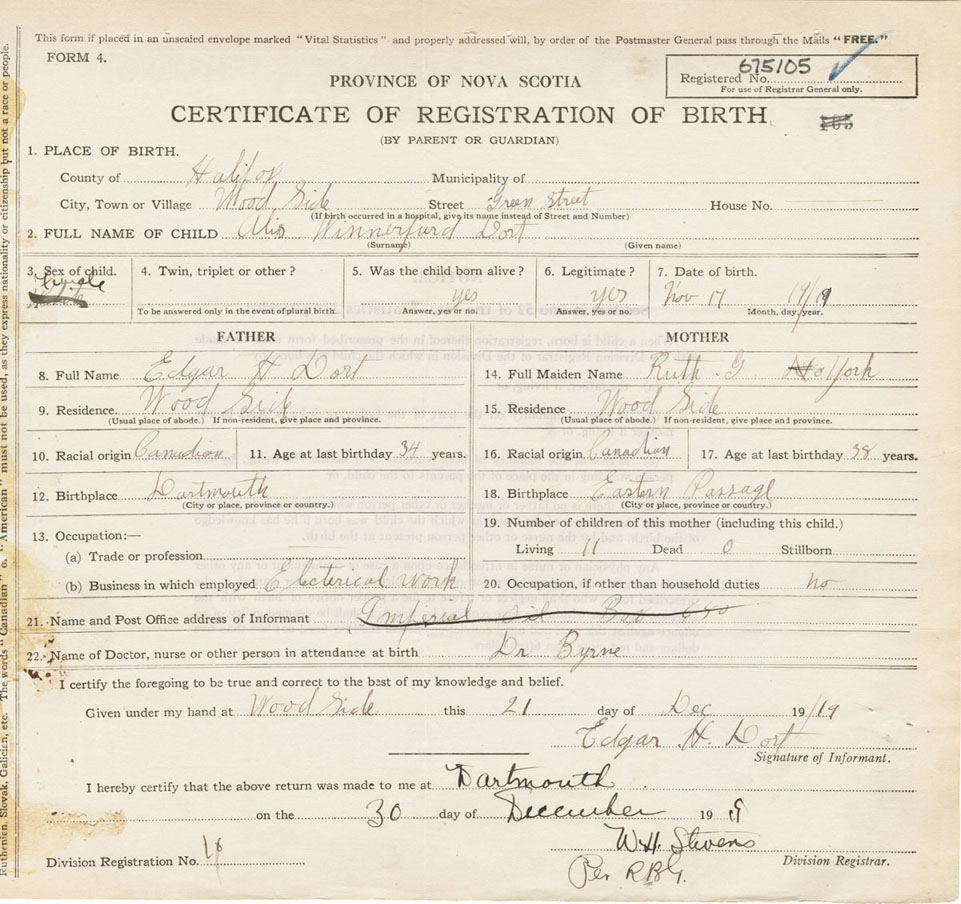 This form if placed in an unsealed envelope marked "Vital Statistics" and properly addressed will, by order of the Postmaster General pass through the Mails "FREE."
FORM 4.
675105
Registered No.
For use of Registrar General only.
PROVINCE OF NOVA SCOTIA
CERTIFICATE OF REGISTRATION OF BIRTH
(BY PARENT OR GUARDIAN)
1. PLACE OF BIRTH.
County of Halifax Municipality of
City, Town or Village Wood Side Street Green Street House No.
(If birth occurred in a hospital, give its name instead of Street and Number)
2. FULL NAME OF CHILD Winnerfurd Dort
(Surname) (Given name)
3. Sex of child. 4. Twin, triplet or other? 5. Was the child born alive? 6. Legitimate? 7. Date of birth.
Female yes yes Nov 17 19/19
To be answered only in the event of plural birth. Answer, yes or no. Answer, yes or no. Month, day, year.
FATHER MOTHER
8. Full Name Edgar H Dort 14. Full Maiden Name Ruth G York
9. Residence. Wood Side 15. Residence Wood Side
(Usual place of abode.) If non-resident, give place and province. (Usual place of abode.) If non-resident, give place and province.
10. Racial origin Canadian 11. Age at last birthday 34 years. 16. Racial origin Canadian 17. Age at last birthday 38 years.
12. Birthplace Dartmouth 18. Birthplace Eastern Passage
(City or place, province or country.) (City or place, province or country.)
13. Occupation:— 19. Number of children of this mother (including this child.)
(a) Trade or profession Living 11 Dead 0 Stillborn
(b) Business in which employed Electerical Work 20. Occupation, if other than household duties no
21. Name and Post Office address of Informant Imperial Oil Box 650
22. Name of Doctor, nurse or other person in attendance at birth Dr Byrne
I certify the foregoing to be true and correct to the best of my knowledge and belief.
Given under my hand at Wood Side this 21 day of Dec 19/19
Edgar H. Dort
Signature of Informant.
I hereby certify that the above return was made to me at Dartmouth
on the 30 day of December 19 19
W.H. Stevens
Division Registration No. Division Registrar.
Per R.B.G.
Ruthenian, Slovak, Galician, etc. The words "Canadian" o. "American" must not be used, as they express nationality or citizenship but not a race or people.